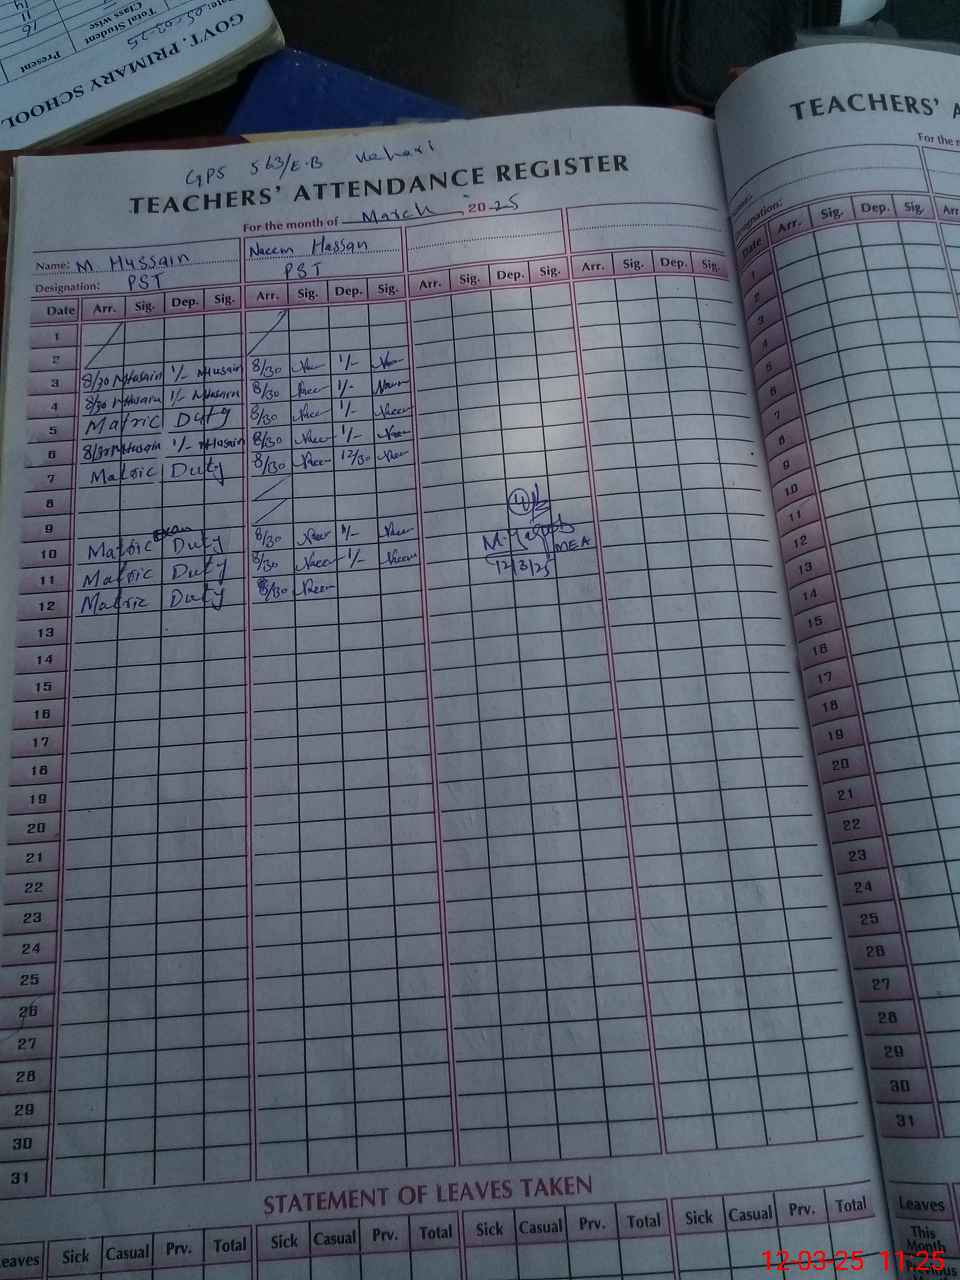 Total Student
Class wise
Present
16
11
14
05-03-25
GOVT. PRIMARY SCHOOL
GPS 563/E.B Vehari
TEACHERS' ATTENDANCE REGISTER
For the month of March, 2025
Name: M Hussain Naeem Hassan
Designation: PST PST
Date Arr. Sig. Dep. Sig. Arr. Sig. Dep. Sig. Arr. Sig. Dep. Sig. Arr. Sig. Dep. Sig.
1
2
3 8/30 MHussain 1/- MHussain 8/30 Naeem 1/- Naeem
4 8/30 MHussain 1/- MHussain 8/30 Naeem 1/- Naeem
5 Matric Duty 8/30 Naeem 1/- Naeem
6 8/30 MHussain 1/- MHussain 8/30 Naeem 1/- Naeem
7 Matric Duty 8/30 Naeem 12/30 Naeem
8
9
10 Matric exam Duty 8/30 Naeem 1/- Naeem
11 Matric Duty 8/30 Naeem 1/- Naeem
12 Matric Duty 8/30 Naeem
M. MEA
12/3/25
13
14
15
16
17
18
19
20
21
22
23
24
25
26
27
28
29
30
31
STATEMENT OF LEAVES TAKEN
Leaves Sick Casual Prv. Total Sick Casual Prv. Total Sick Casual Prv. Total Sick Casual Prv. Total
TEACHERS' A
For the m
Date Arr. Sig. Dep. Sig. Arr
1
2
3
4
5
6
7
8
9
10
11
12
13
14
15
16
17
18
19
20
21
22
23
24
25
26
27
28
29
30
31
Leaves
This
Month
12-03-25 11:25